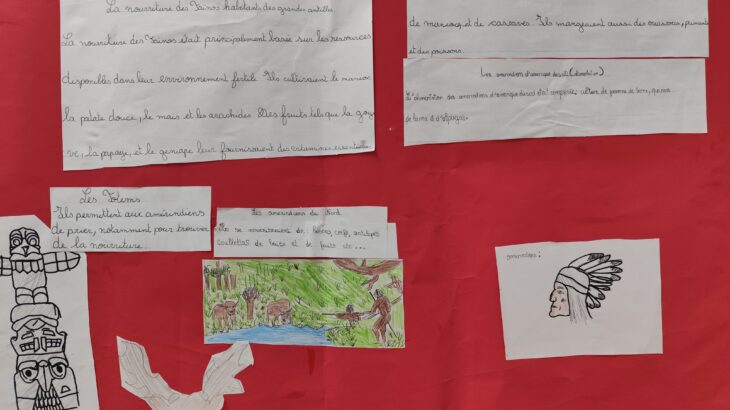 La nourriture des Taïnos habitants des grandes antilles.
La nourriture des Taïnos était principalement basée sur les ressources
disponibles dans leur environnement fertile. Ils cultivaient le manioc
la patate douce, le maïs et les arachides. Des fruits tels que la goya
-ve, la papaye, et le genipe leur fournissaient des vitamines essentielles
de manioc et de cassaves. Ils mangeaient aussi des
et des poissons.
Les amerindiens d'amerique du sud (alimentation)
L'alimentation des amerindiens d'amerique du sud était composée: culture de pomme de terre,
de lama et d'alpaga.
Les Totems
Ils permettent aux amérindiens
de prier, notamment pour trouver
de la nourriture.
Les amerindiens du Nord
se nourrissaient de: bisons, cerfs, antilopes
cueillettes de baies et de fruits etc...
amerindiens: